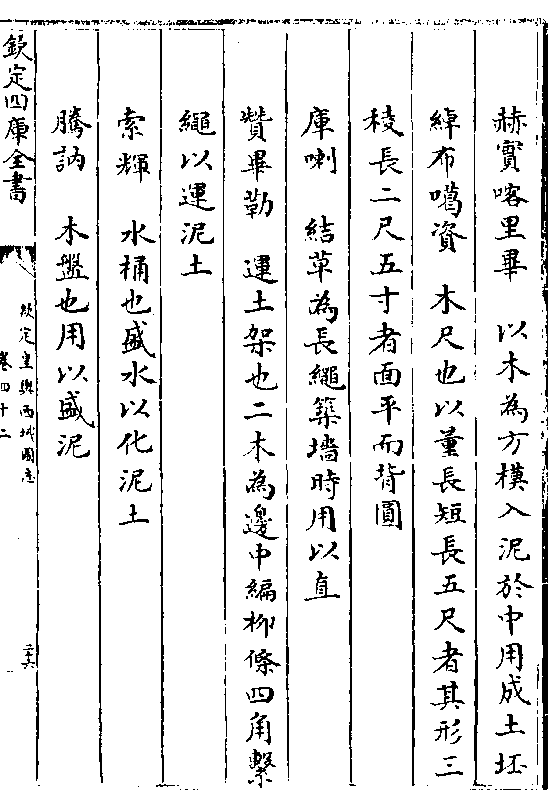 赫實喀里畢　以木為方模入泥於中用成土坯
綽布噶資　木尺也以量長短長五尺者其形三
稜長二尺五寸者面平而背圓
庫喇　結草為長繩築墻時用以直
贊畢勒　運土架也二木為邊中編柳條四角繫
繩以運泥土
索輝　水桶也盛水以化泥土
騰訥　木盤也用以盛泥
欽定四庫全書
欽定皇輿西域圖志
卷四十二
二十六